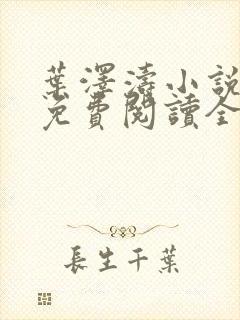 葉澤濤小說
免費閱讀全
長生千葉